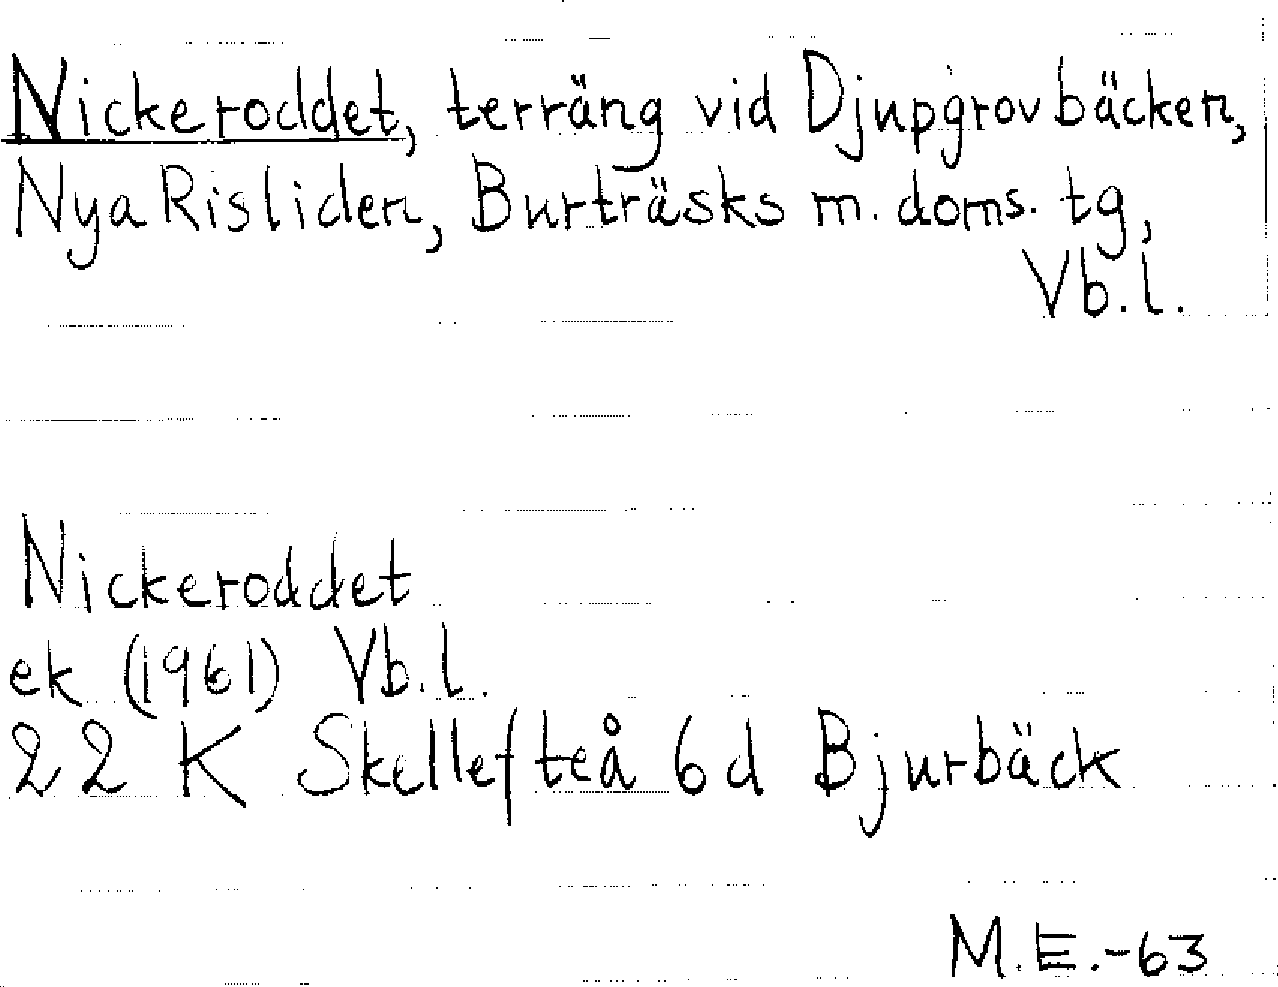 Nickeroddet, terräng vid Djupgrovbäcken,
Nya Risliden, Burträsks m. doms. tg,
Vb. l.
Nickeroddet
ek (1961) Vb. l.
22 K Skellefteå 6d Bjurbäck
M.E.-63